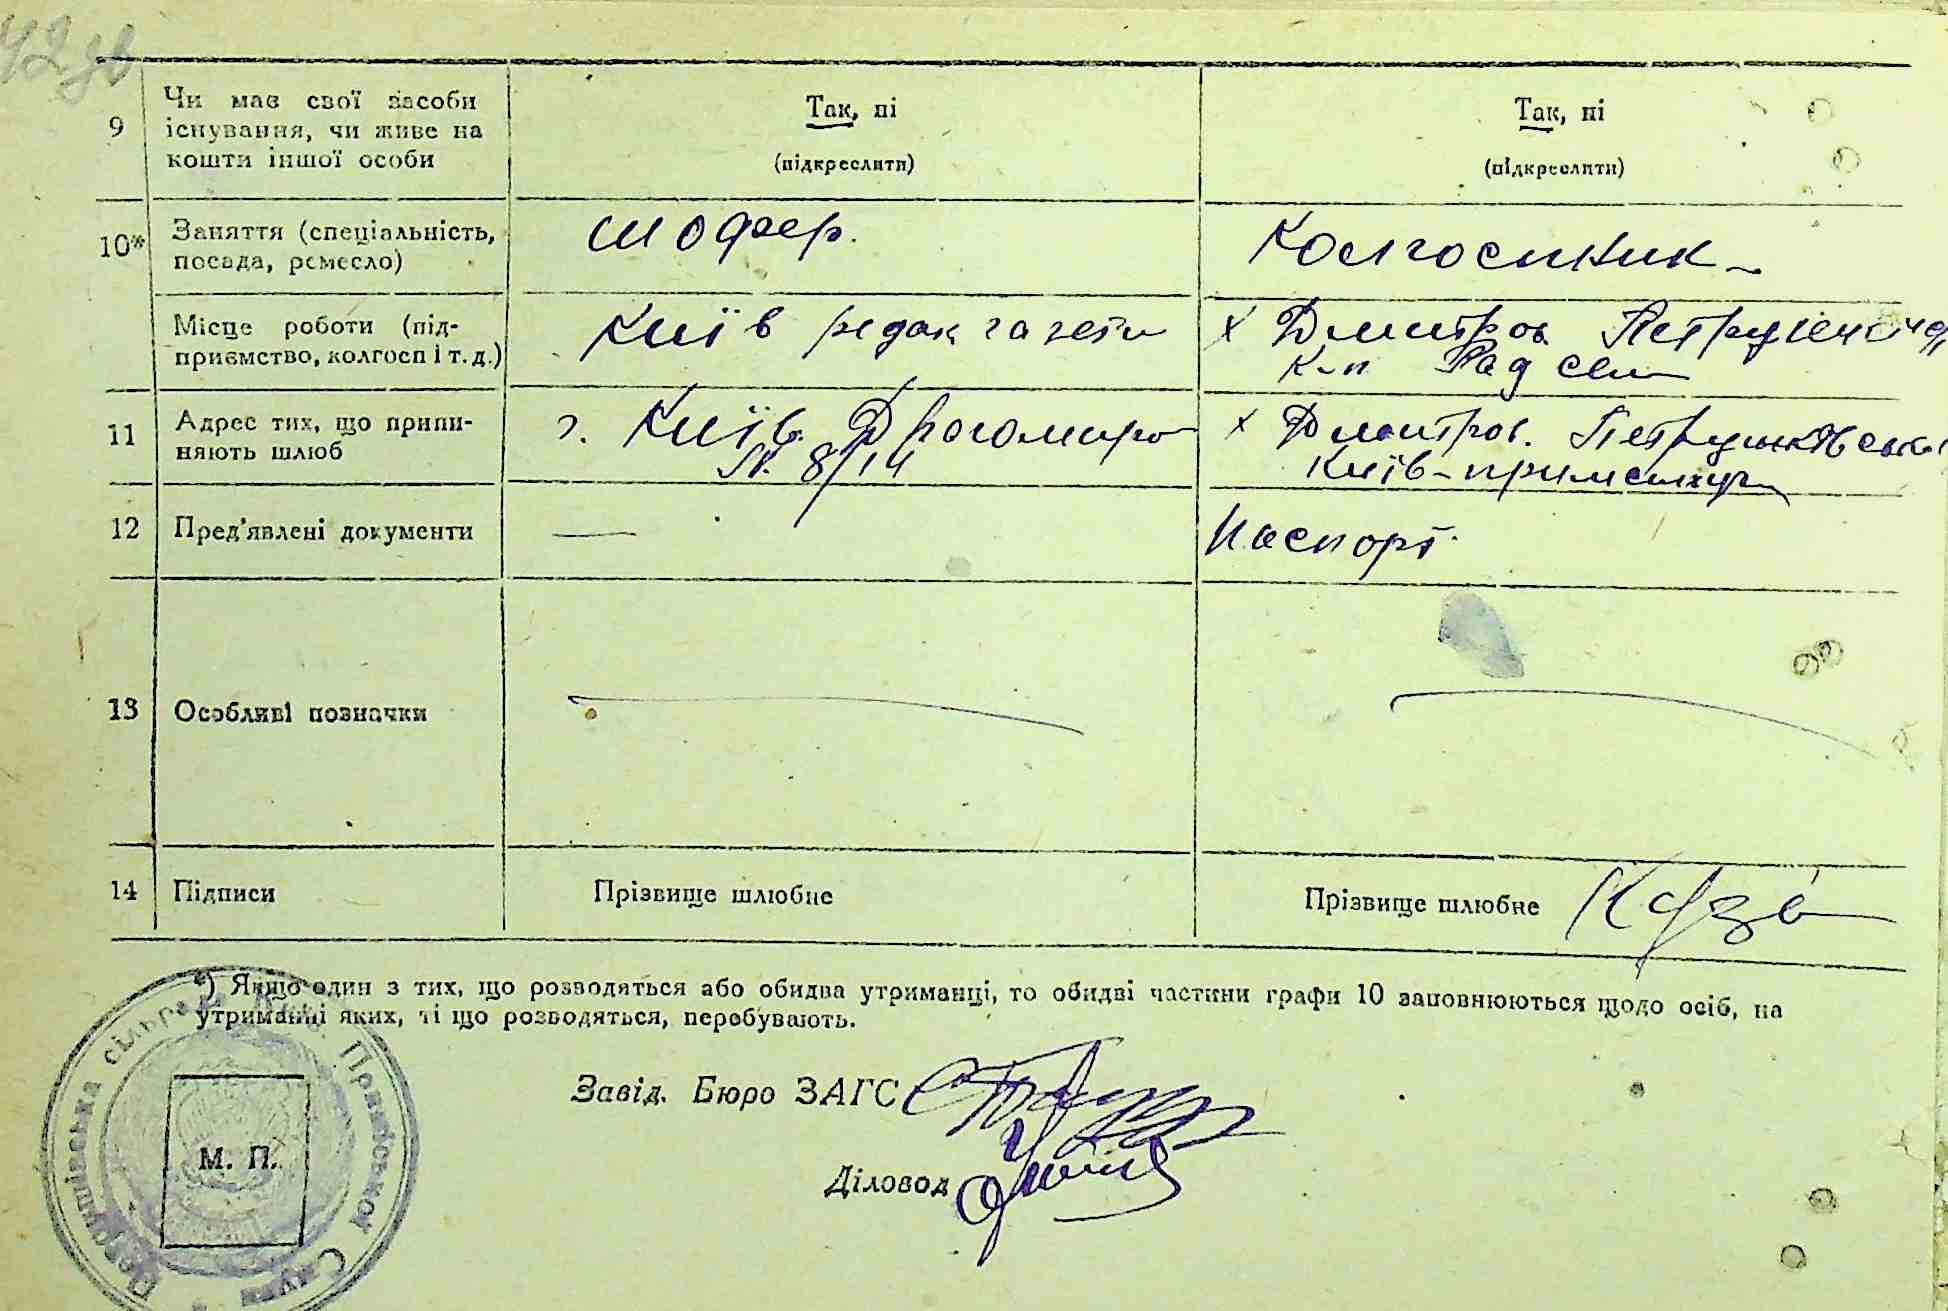 42 зв
9
Чи має свої засоби
існування, чи живе на
кошти іншої особи
Так, ні
(підкреслити)
Так, ні
(підкреслити)
10*
Заняття (спеціальність,
посада, ремесло)
шофер.
Колгоспник
Місце роботи (під-
приємство, колгосп і т. д.)
Київ редак газети
х Дмитров.
к-п Рад село
11
Адрес тих, що припи-
няють шлюб
г. Київ. Драгомиро
№ 8/14
х Дмитров.
Київ-
12
Пред'явлені документи
—
Паспорт.
13
Особливі позначки
14
Підписи
Прізвище шлюбне
Прізвище шлюбне
*) Якщо один з тих, що розводяться або обидва утриманці, то обидві частини графи 10 заповнюються щодо осіб, на
утриманні яких, ті що розводяться, перебувають.
Завід. Бюро ЗАГС
Діловод
М. П.